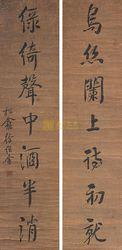 烏絲闌上詩初就
綠綺聲中酒半消